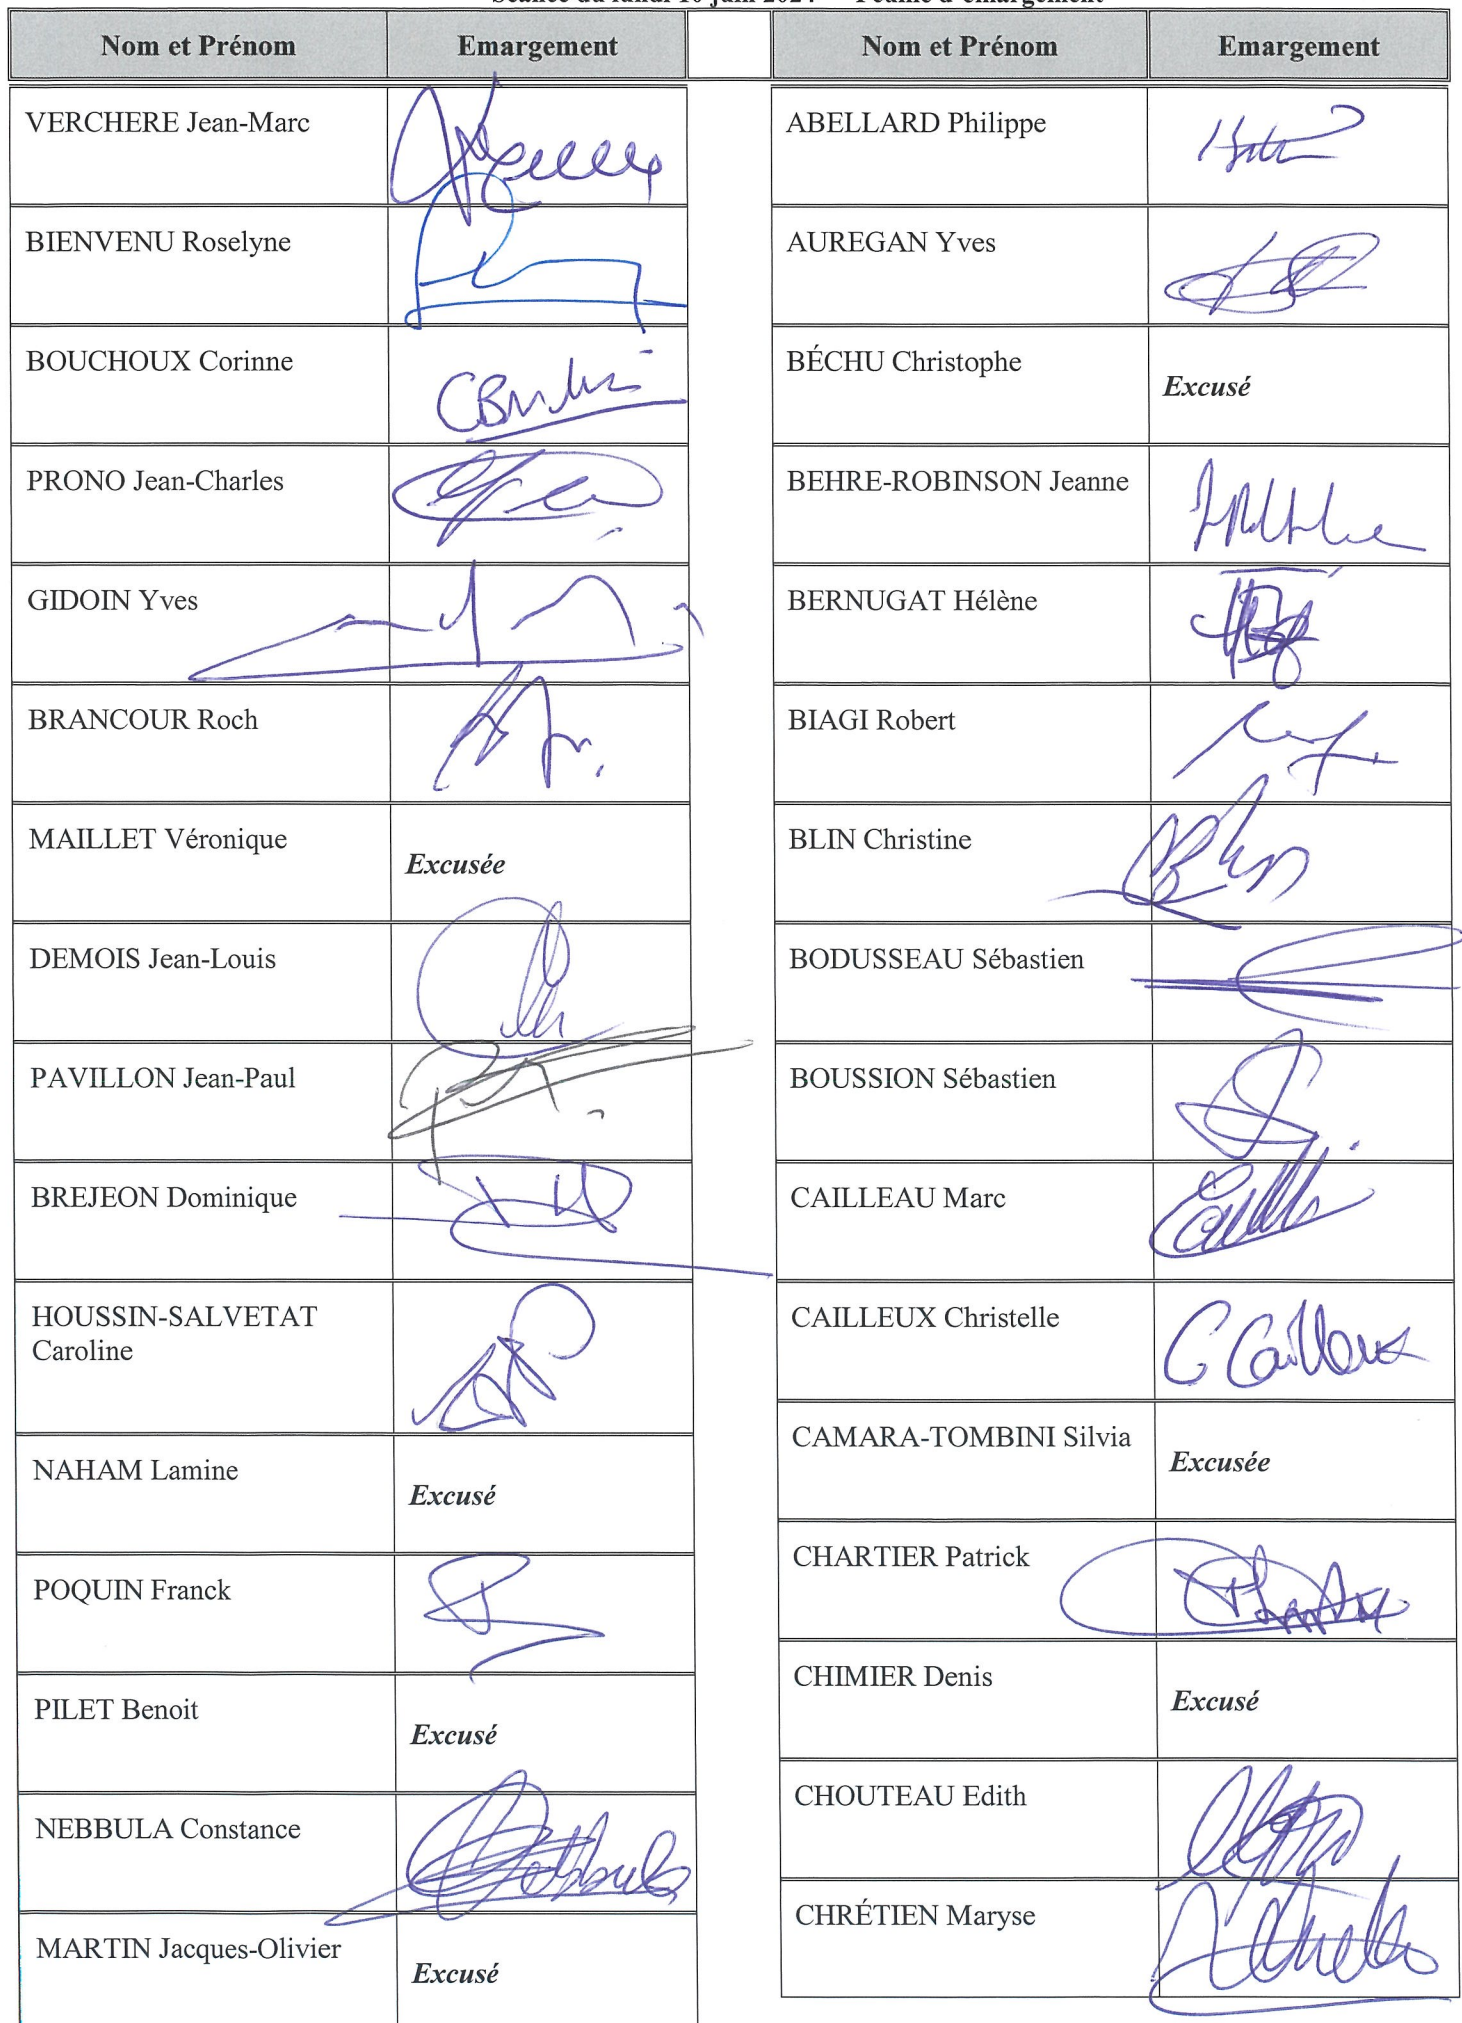 Séance du lundi 10 juin 2024 Feuille d'émargement
Nom et Prénom Emargement
VERCHERE Jean-Marc
BIENVENU Roselyne
BOUCHOUX Corinne
PRONO Jean-Charles
GIDOIN Yves
BRANCOUR Roch
MAILLET Véronique
Excusée
DEMOIS Jean-Louis
PAVILLON Jean-Paul
BREJEON Dominique
HOUSSIN-SALVETAT
Caroline
NAHAM Lamine
Excusé
POQUIN Franck
PILET Benoit
Excusé
NEBBULA Constance
MARTIN Jacques-Olivier
Excusé
Nom et Prénom Emargement
ABELLARD Philippe
AUREGAN Yves
BÉCHU Christophe
Excusé
BEHRE-ROBINSON Jeanne
BERNUGAT Hélène
BIAGI Robert
BLIN Christine
BODUSSEAU Sébastien
BOUSSION Sébastien
CAILLEAU Marc
CAILLEUX Christelle
C Cailleux
CAMARA-TOMBINI Silvia
Excusée
CHARTIER Patrick
CHIMIER Denis
Excusé
CHOUTEAU Edith
CHRÉTIEN Maryse